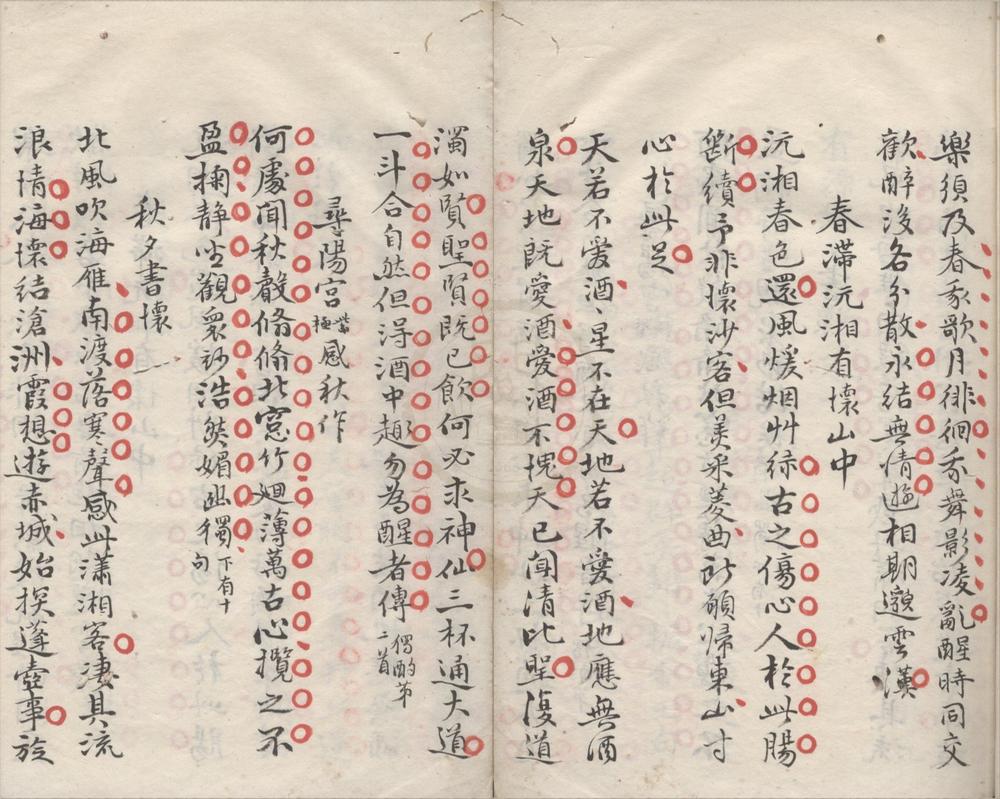 樂須及春我歌月徘徊我舞影凌亂醒時同交
歡醉後各分散永結無情遊相期邈雲漢
春滯沅湘有懷山中
沅湘春色還風煖烟艸綠古之傷心人於此腸
斷續予非懷沙客但美采菱曲所願歸東山寸
心於此足
天若不愛酒星不在天地若不愛酒地應無酒
泉天地既愛酒愛酒不愧天已聞清比聖復道
濁如賢聖賢既已飲何必求神仙三杯通大道
一斗合自然但得酒中趣勿為醒者傳獨酌第二首
尋陽宮紫極感秋作
何處聞秋聲翛翛北窓竹廻薄萬古心攬之不
盈掬静坐觀衆妙浩然媚幽獨下有十句
秋夕書懷
北風吹海雁南渡落寒聲感此瀟湘客淒其流
浪情海懷結滄洲霞想遊赤城始探蓬壺事旋